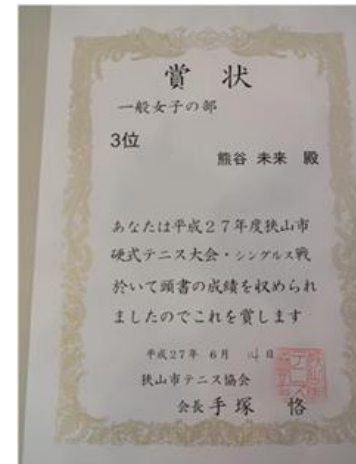 賞状
一般女子の部
3位
熊谷 未来 殿
あなたは平成27年度狭山市
硬式テニス大会・シングルス戦
於いて頭書の成績を収められ
ましたのでこれを賞します
平成27年 6月 14日
狭山市テニス協会
会長 手塚 恪